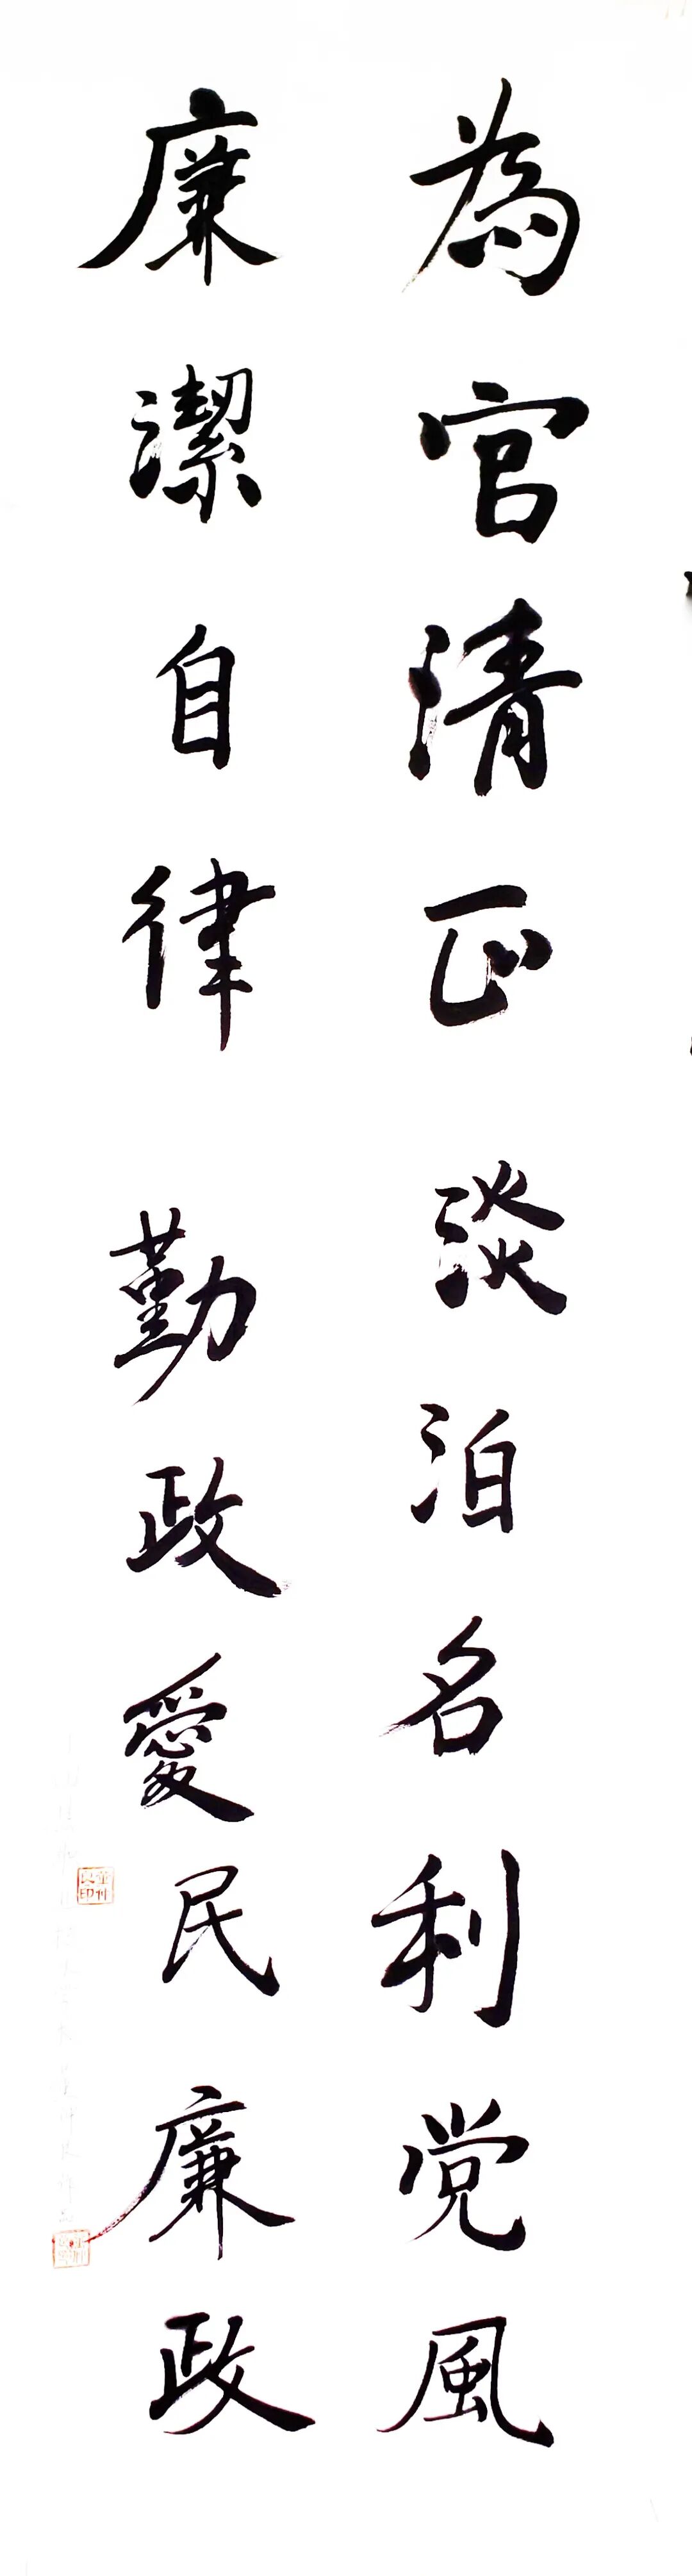 為官清正淡泊名利党風
廉潔自律勤政愛民廉政